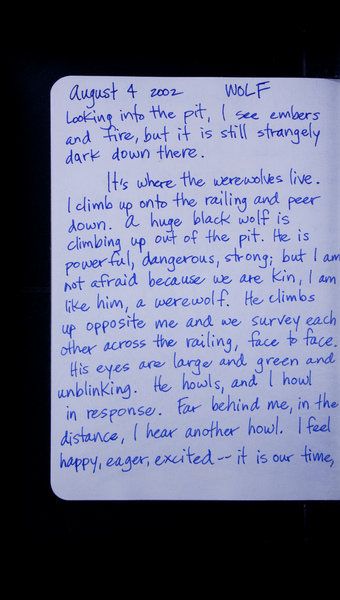 August 4 2002 WOLF
Looking into the pit, I see embers
and fire, but it is still strangely
dark down there.
It's where the werewolves live.
I climb up onto the railing and peer
down. A huge black wolf is
climbing up out of the pit. He is
powerful, dangerous, strong; but I am
not afraid because we are kin, I am
like him, a werewolf. He climbs
up opposite me and we survey each
other across the railing, face to face.
His eyes are large and green and
unblinking. He howls, and I howl
in response. Far behind me, in the
distance, I hear another howl. I feel
happy, eager, excited -- it is our time,